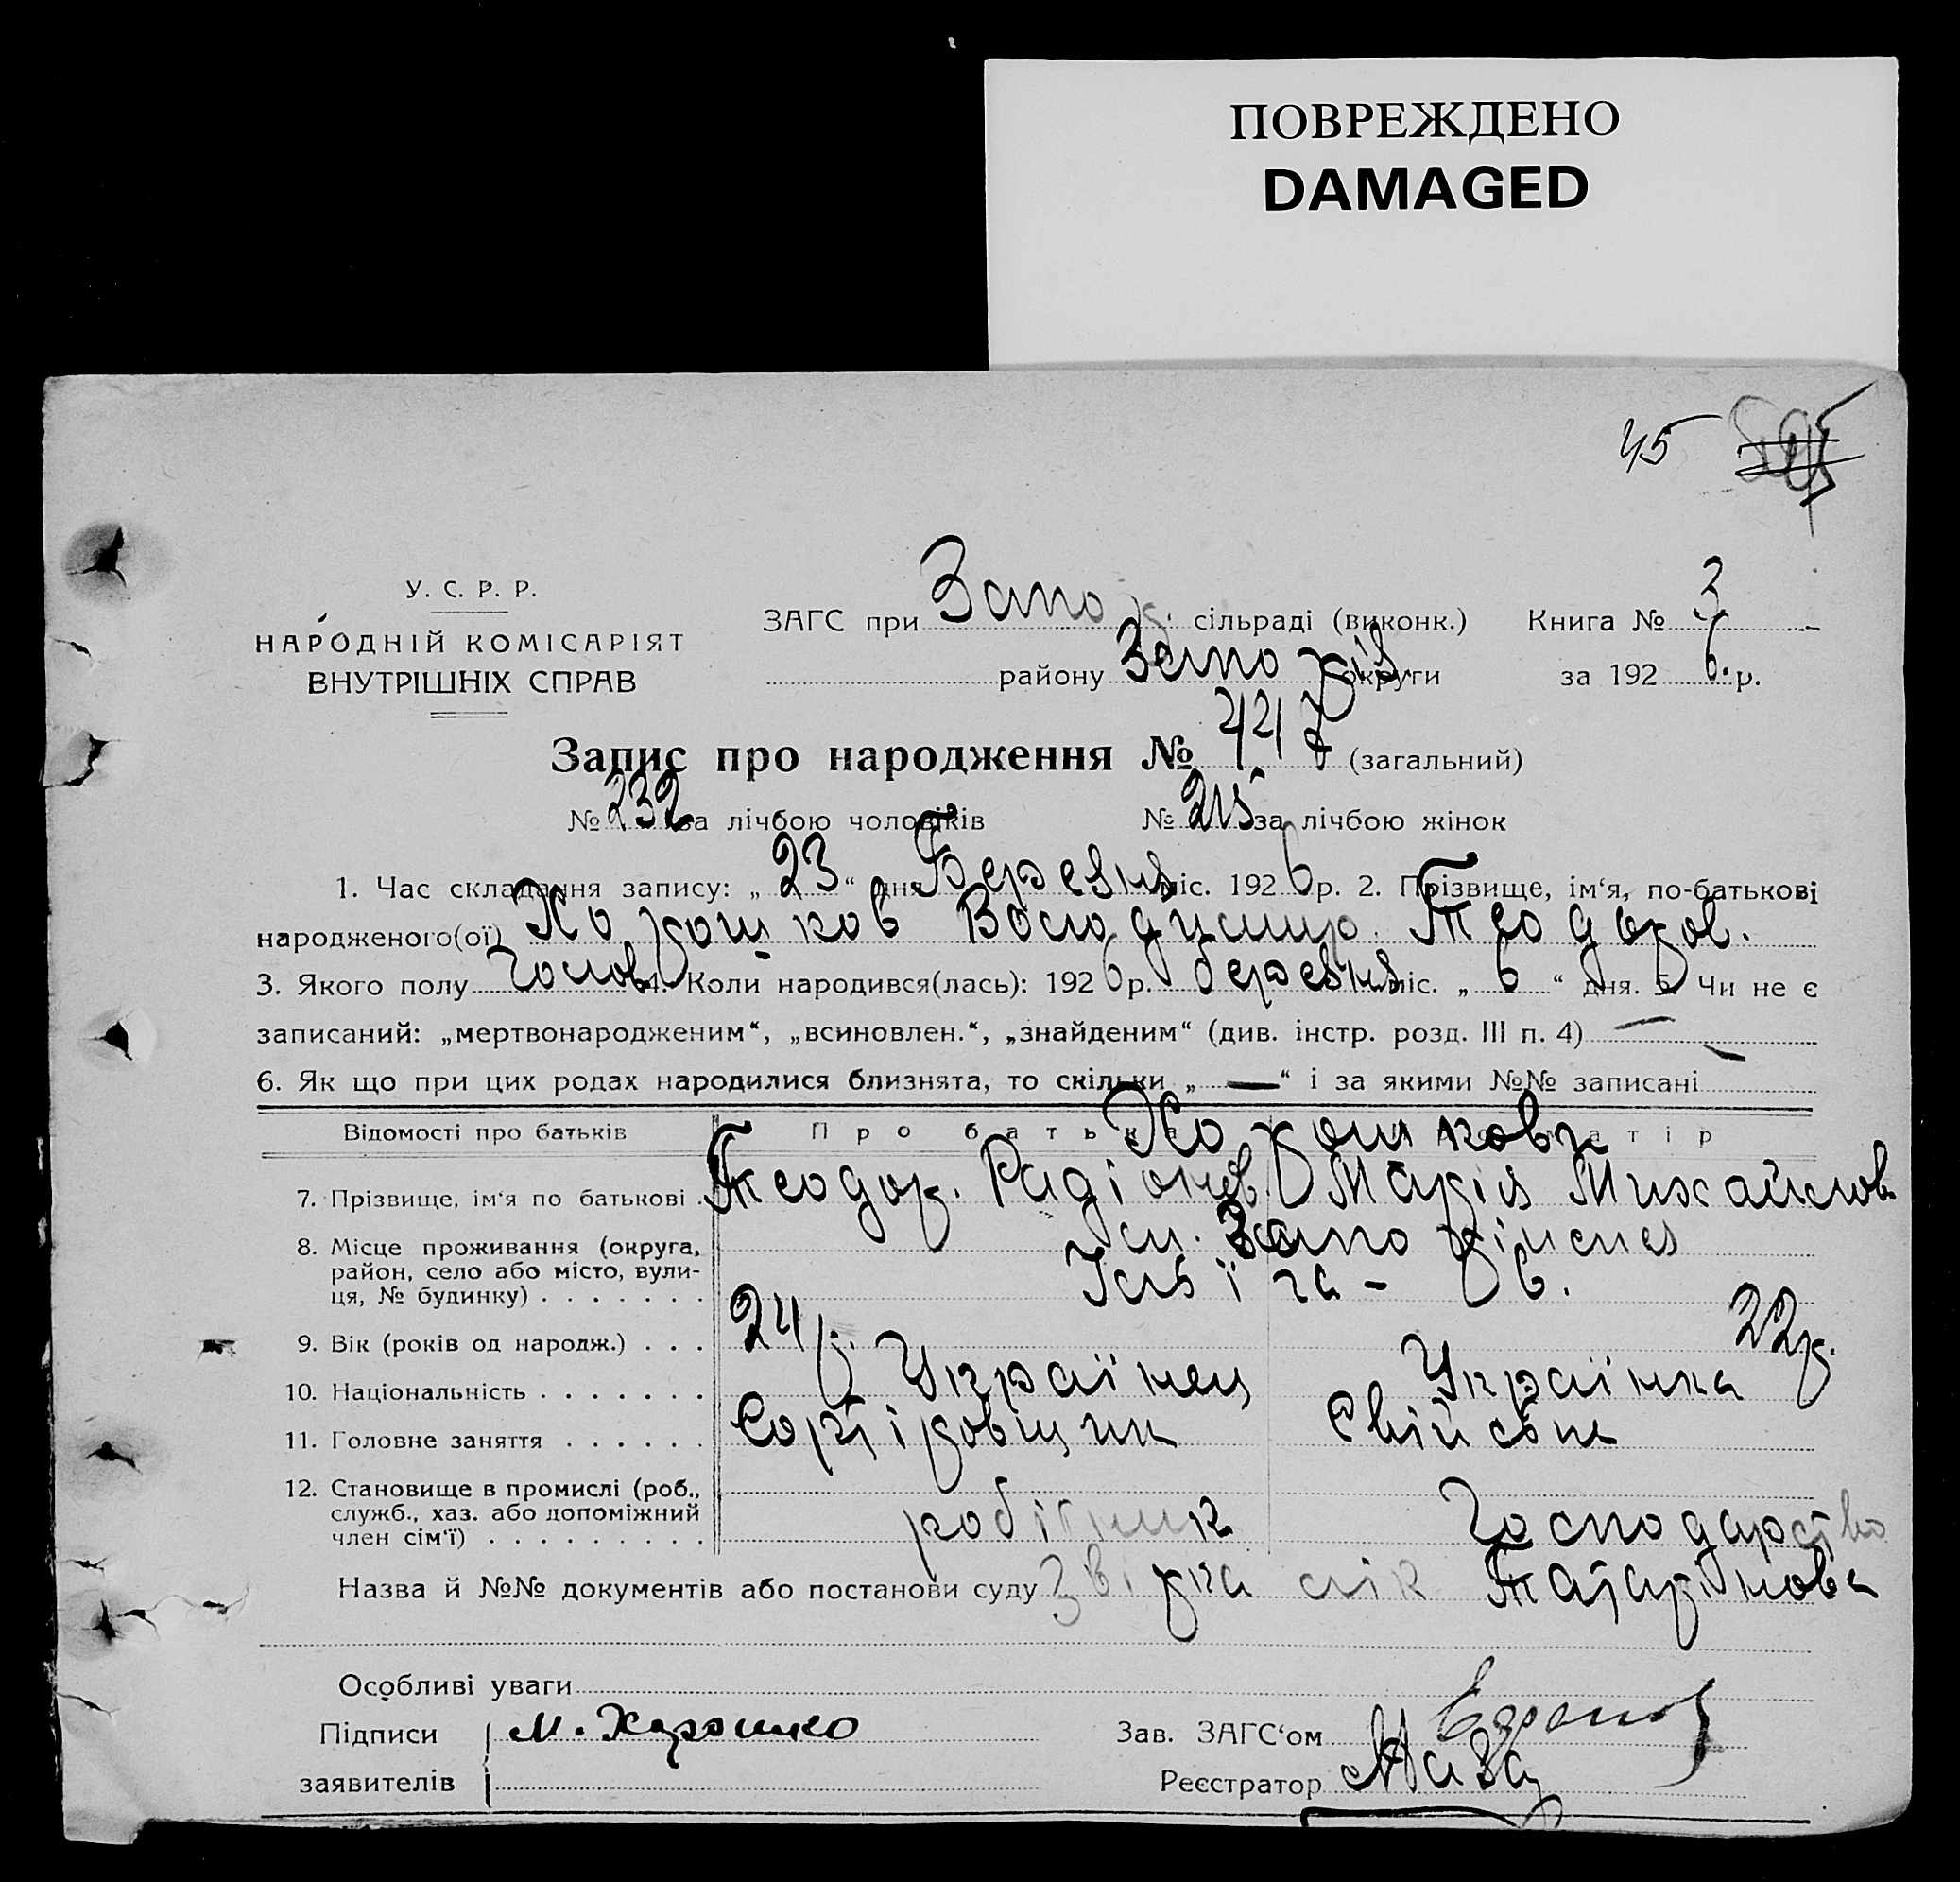 ПОВРЕЖДЕНО
DAMAGED
45
У. С. Р. Р.
НАРОДНІЙ КОМІСАРІЯТ
ВНУТРІШНІХ СПРАВ
ЗАГС при Запор. сільраді (виконк.) Книга № 3
району Запоріз. округи за 192 6 р.
Запис про народження № 447 (загальний)
№ 232 за лічбою чоловіків № 215 за лічбою жінок
1. Час складання запису: „ 23 “ дня Березня міс. 192 6 р. 2. Прізвище, ім‘я, по-батькові
народженого(ої) Хорошков Володимир Теодоров.
3. Якого полу Чолов 4. Коли народився(лась): 192 6 р. березня міс. „ 6 “ дня. 5. Чи не є
записаний: „мертвонародженим“, „всиновлен.“, „знайденим“ (див. інстр. розд. III п. 4) —
6. Як що при цих родах народилися близнята, то скільки „ — “ і за якими №№ записані —
Відомості про батьків Про батька Про матір
Хорошкови
7. Прізвище, ім‘я по батькові . Теодор. Радіонов. Марія Михайлов
8. Місце проживання (округа, район, село або місто, вулиця, № будинку) . . . . . . . м.
9. Вік (років од народж.) . . . 24 р. 22 р.
10. Національність . . . . . . . Українец Українка
11. Головне заняття . . . . . . Сортіровщик Свійське
12. Становище в промислі (роб., служб., хаз. або допоміжний член сім‘ї) . . . . . . . . . робітник Господарство
Назва й №№ документів або постанови суду Татарінова
Особливі уваги
Підписи М. Хорошко Зав. ЗАГС‘ом
заявителів Реєстратор